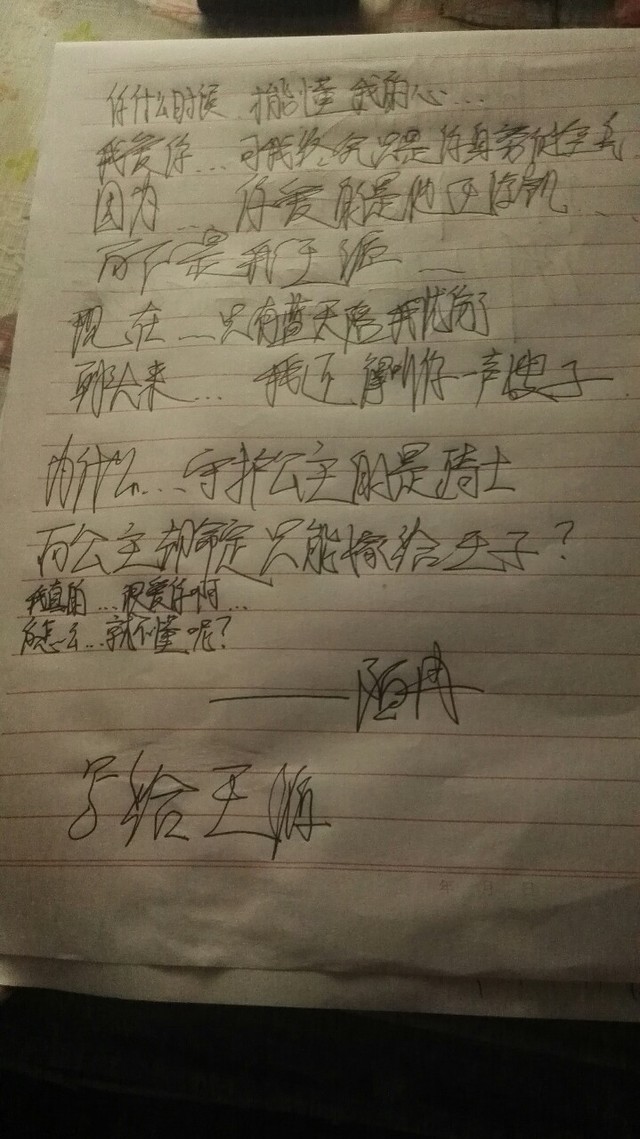 你什么时候 才能懂 我的心...
我爱你... 可我终究只是你身旁的
因为... 你爱的是他王俊凯...
而不是我王源...
现在...只有蓝天陪我忧伤了
聊人来... 我还得叫你一声嫂子
为什么...守护公主的是骑士
而公主却命定只能嫁给王子?
我真的...很爱你啊...
你怎么...就不懂呢?
——陌冉
写给王源
年 月 日